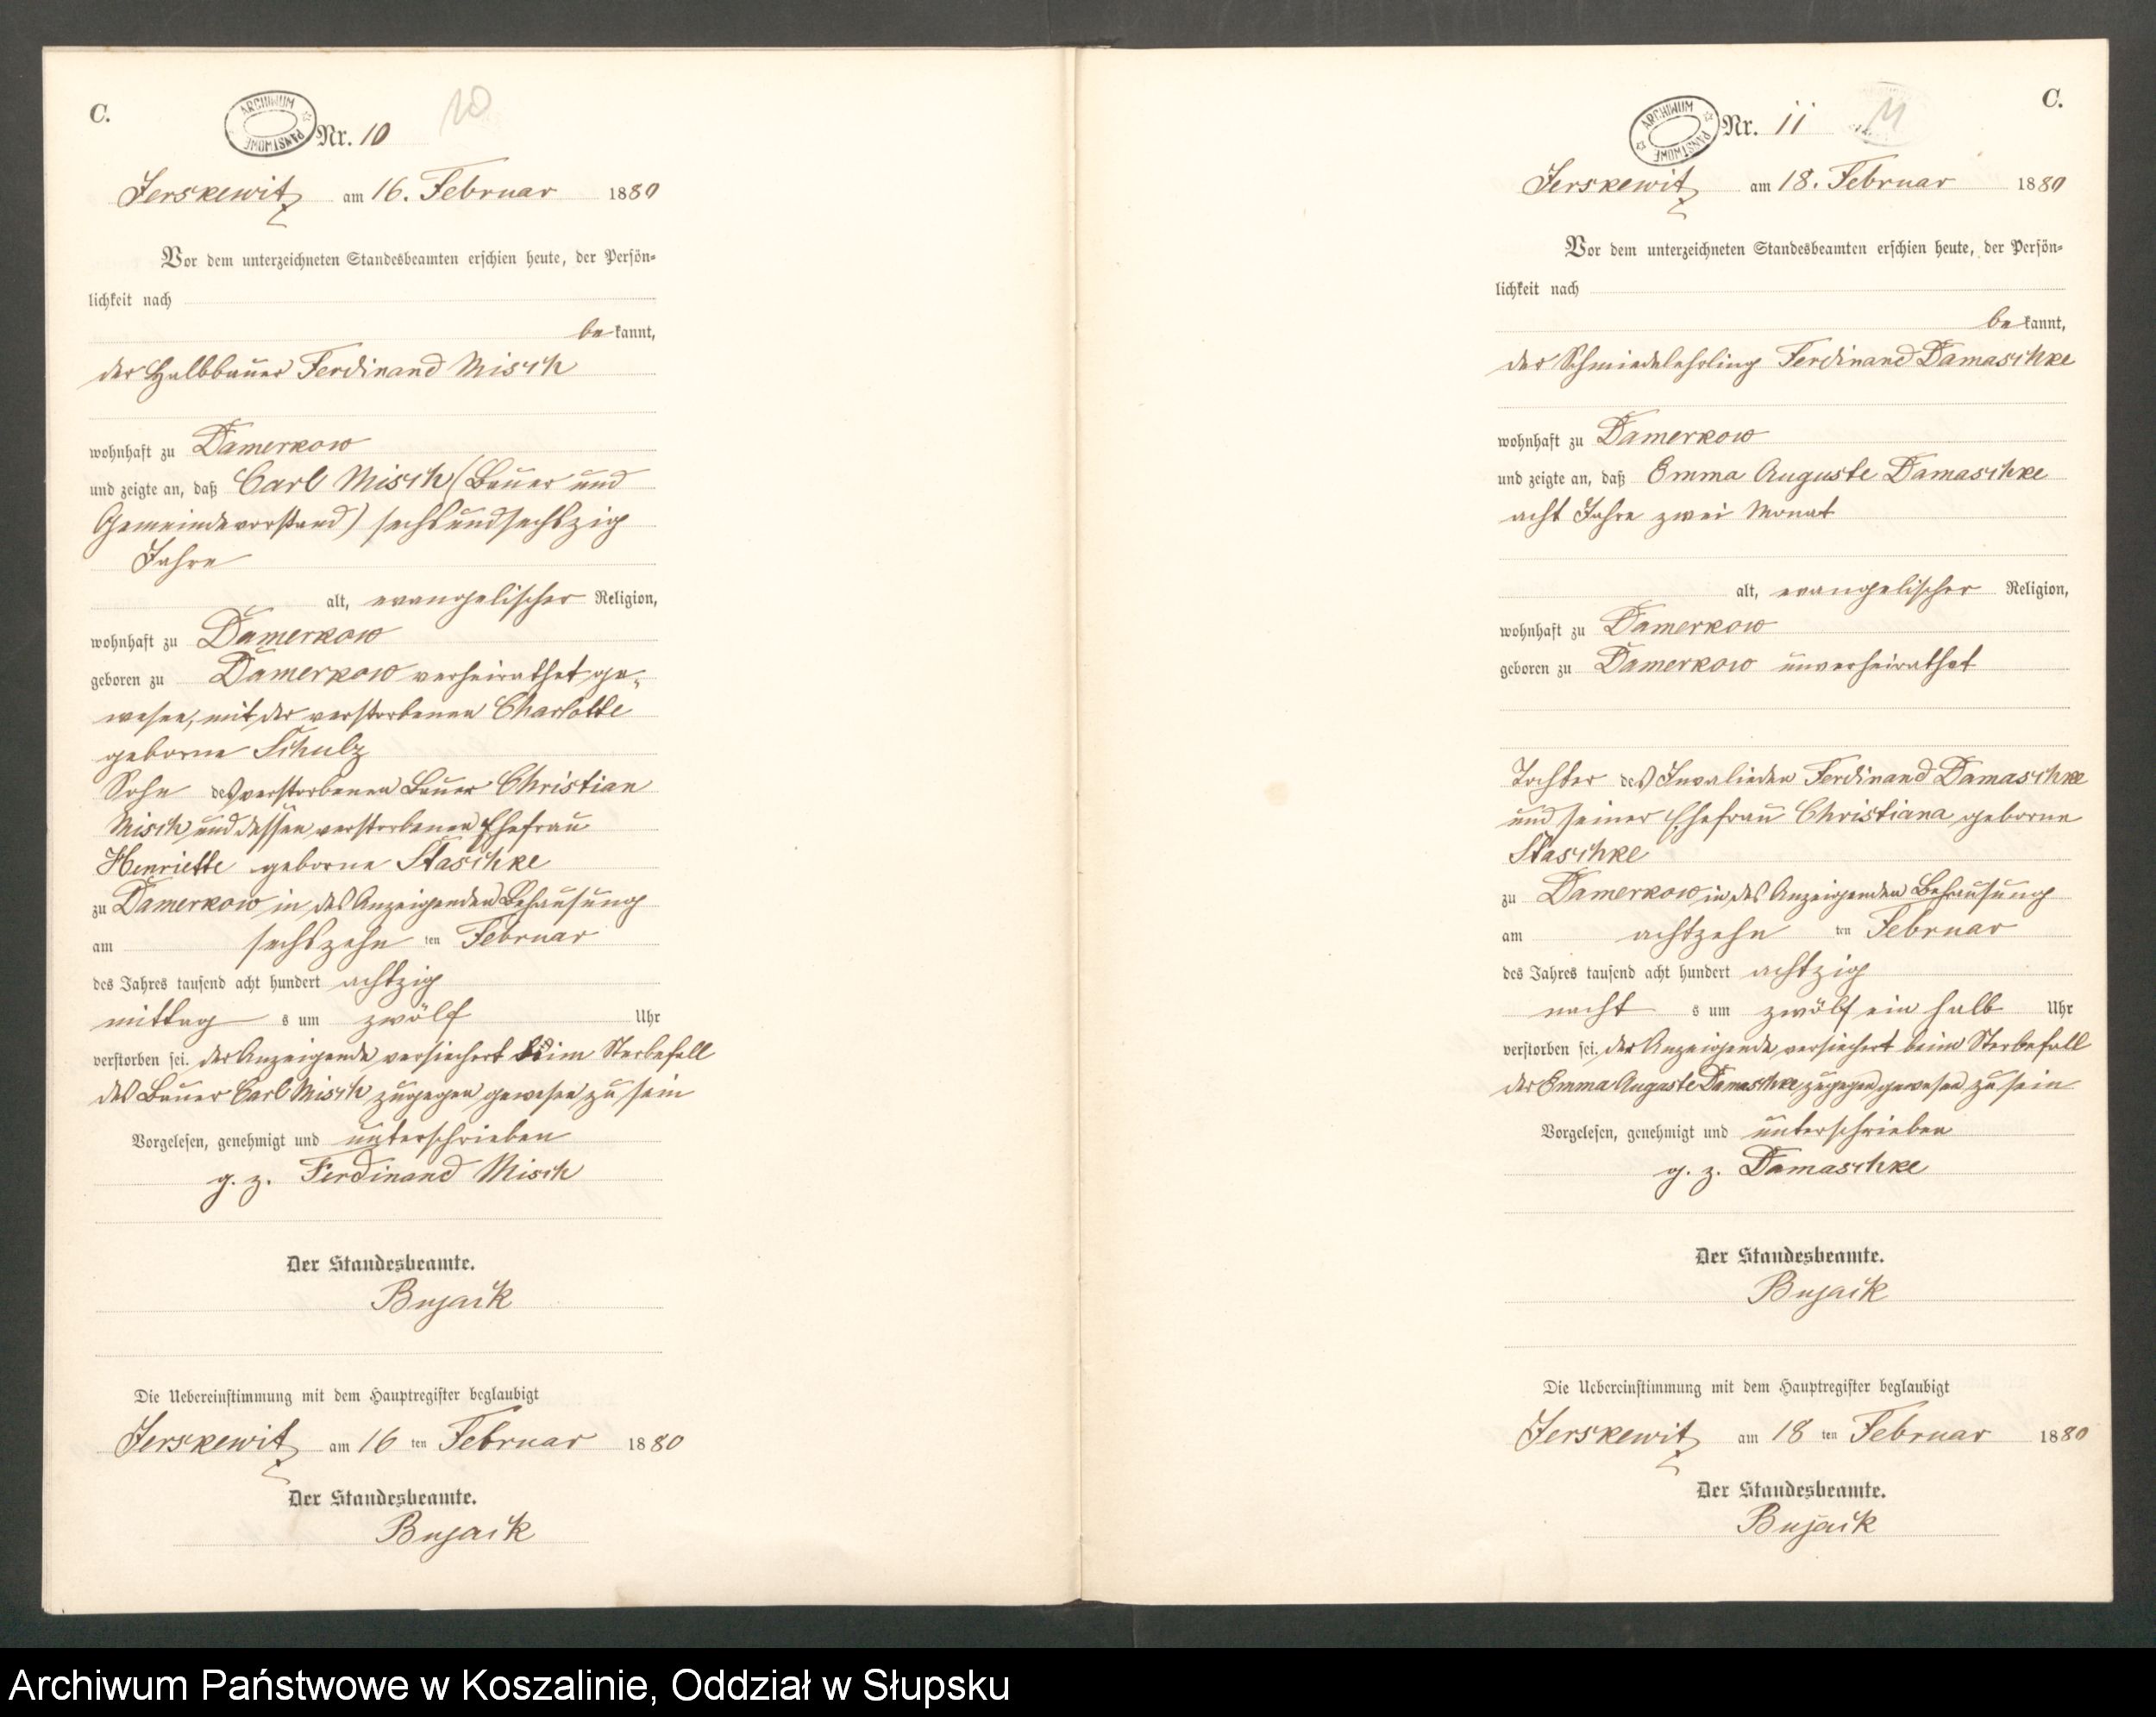 C.
ARCHIWUM PAŃSTWOWE
Nr. 10
10
Jerskewitz am 16. Februar 1880
Vor dem unterzeichneten Standesbeamten erschien heute, der Persön=
lichkeit nach
be kannt,
der Halbbauer Ferdinand Misch
wohnhaft zu Damerkow
und zeigte an, daß Carl Misch (Bauer und
Gemeindevorstand) sechsundsechszig
Jahre
alt, evangelischer Religion,
wohnhaft zu Damerkow
geboren zu Damerkow verheirathet ge-
wesen, mit der verstorbenen Charlotte
geborne Schulz
Sohn des verstorbenen Bauer Christian
Misch und dessen verstorbenen Ehefrau
Henriette geborne Staschke
zu Damerkow in des Anzeigenden Behausung
am sechszehn ten Februar
des Jahres tausend acht hundert achtzig
mittag s um zwölf Uhr
verstorben sei. der Anzeigende versichert beim Sterbefall
des Bauer Carl Misch zugegen gewesen zu sein
Vorgelesen, genehmigt und unterschrieben
g. z. Ferdinand Misch
Der Standesbeamte.
Bujack
Die Uebereinstimmung mit dem Hauptregister beglaubigt
Jerskewitz am 16 ten Februar 1880
Der Standesbeamte.
Bujack
C.
ARCHIWUM PAŃSTWOWE
Nr. 11
11
Jerskewitz am 18. Februar 1880
Vor dem unterzeichneten Standesbeamten erschien heute, der Persön=
lichkeit nach
be kannt,
der Schmiedelehrling Ferdinand Damaschke
wohnhaft zu Damerkow
und zeigte an, daß Emma Auguste Damaschke
acht Jahre zwei Monat
alt, evangelischer Religion,
wohnhaft zu Damerkow
geboren zu Damerkow unverheirathet
Tochter des Invalieden Ferdinand Damaschke
und seiner Ehefrau Christiana geborne
Staschke
zu Damerkow in des Anzeigenden Behausung
am achtzehn ten Februar
des Jahres tausend acht hundert achtzig
nacht s um zwölf ein halb Uhr
verstorben sei. der Anzeigende versichert beim Sterbefall
der Emma Auguste Damaschke zugegen gewesen zu sein
Vorgelesen, genehmigt und unterschrieben
g. z. Damaschke
Der Standesbeamte.
Bujack
Die Uebereinstimmung mit dem Hauptregister beglaubigt
Jerskewitz am 18 ten Februar 1880
Der Standesbeamte.
Bujack
Archiwum Państwowe w Koszalinie, Oddział w Słupsku